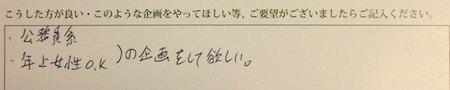 こうした方が良い・このような企画をやってほしい等、ご要望がございましたらご記入ください。
・公務員系
・年上女性O.K )の企画をして欲しい。